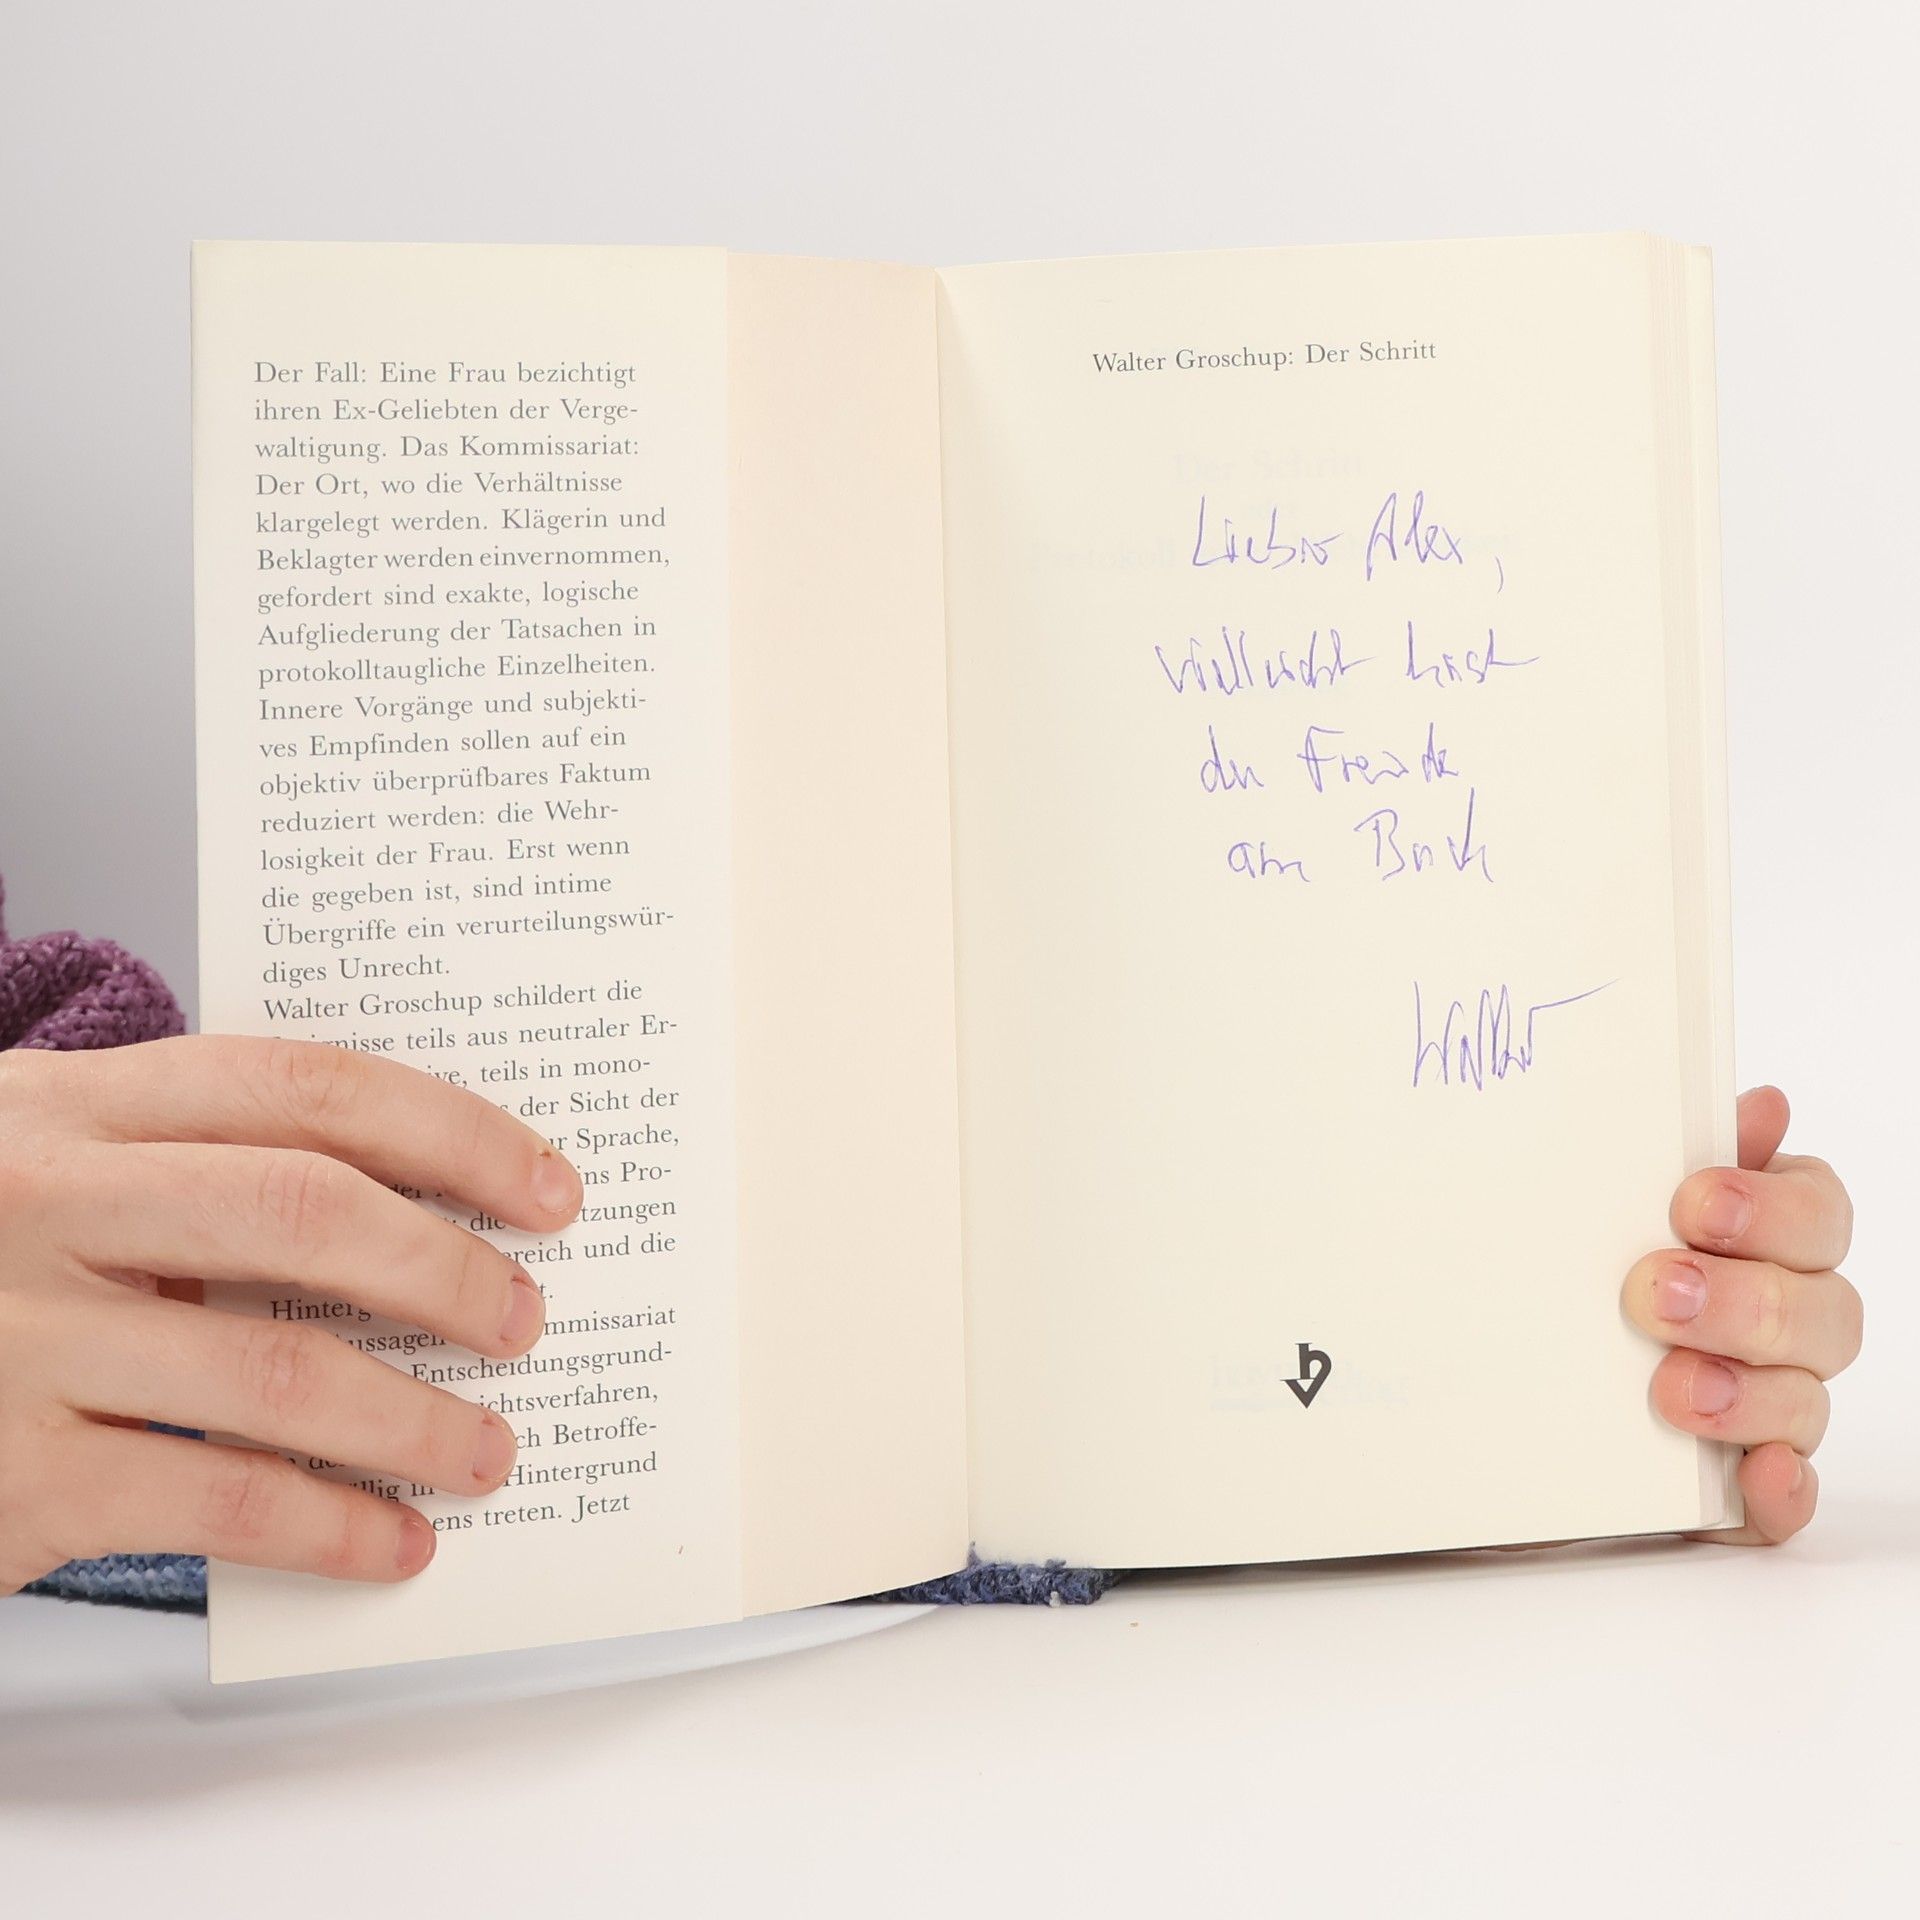 Der Fall: Eine Frau bezichtigt
ihren Ex-Geliebten der Verge-
waltigung. Das Kommissariat:
Der Ort, wo die Verhältnisse
klargelegt werden. Klägerin und
Beklagter werden einvernommen,
gefordert sind exakte, logische
Aufgliederung der Tatsachen in
protokolltaugliche Einzelheiten.
Innere Vorgänge und subjekti-
ves Empfinden sollen auf ein
objektiv überprüfbares Faktum
reduziert werden: die Wehr-
losigkeit der Frau. Erst wenn
die gegeben ist, sind intime
Übergriffe ein verurteilungswür-
diges Unrecht.
Walter Groschup schildert die
teils aus neutraler Er-
teils in mono-
der Sicht der
Sprache,
ins Pro-
und die
Kommissariat
Entscheidungsgrund-
Betroffe-
Hintergrund
treten. Jetzt
Walter Groschup: Der Schritt
Lieber Alex,
vielleicht hast
du Freude
am Buch
Walter